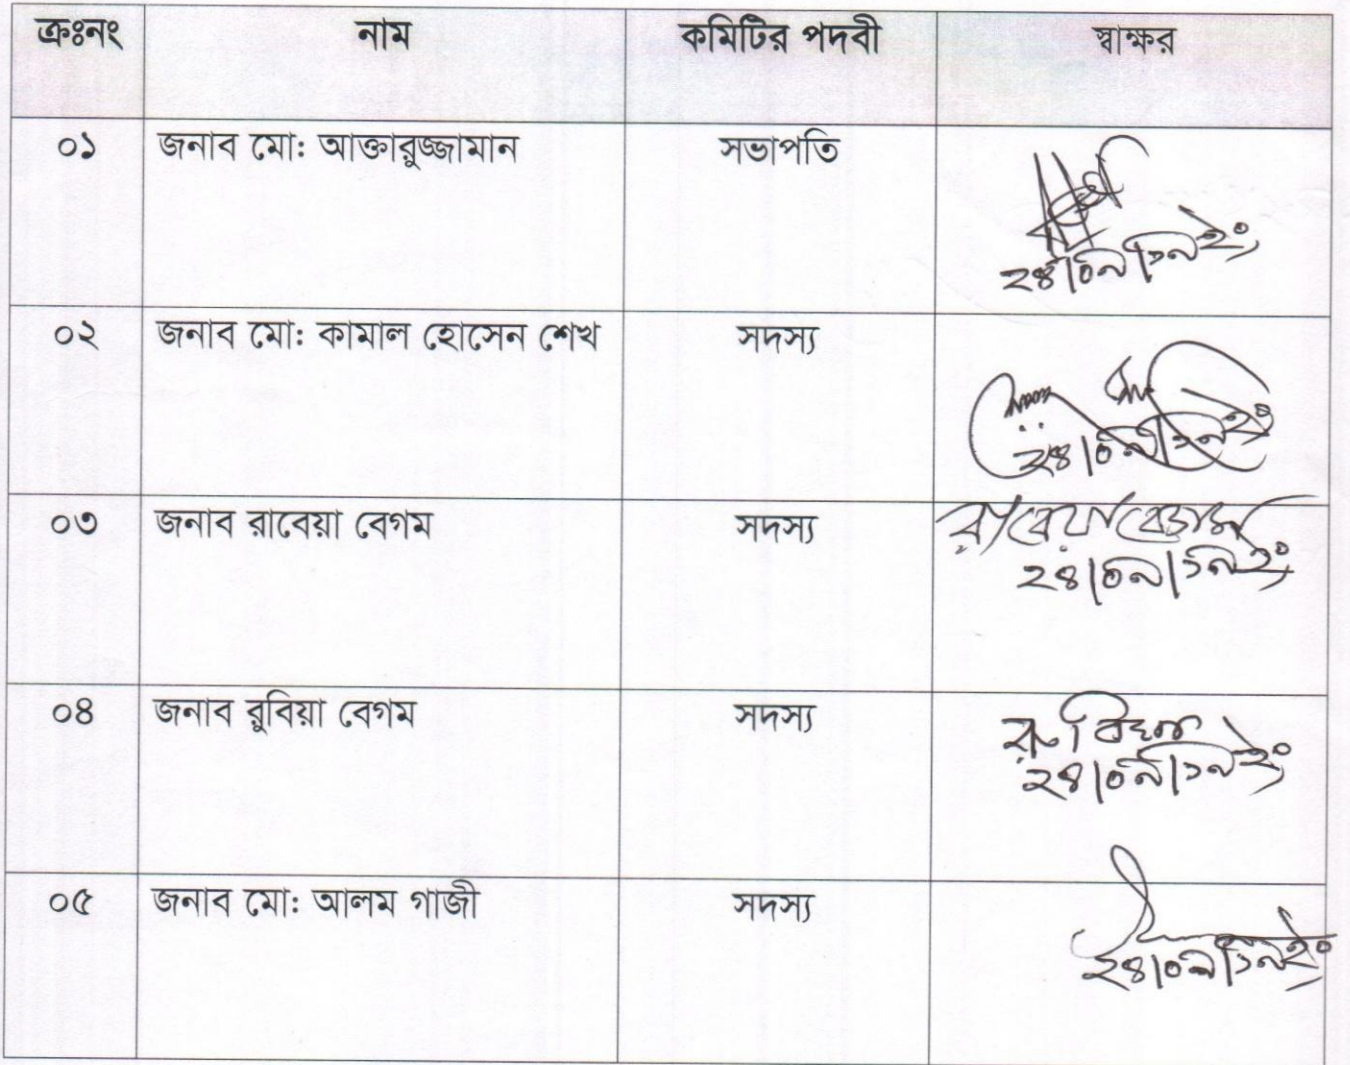 ক্রঃনং নাম কমিটির পদবী স্বাক্ষর
০১ জনাব মো: আক্তারুজ্জামান সভাপতি
২৪।০৯।১৯ইং
০২ জনাব মো: কামাল হোসেন শেখ সদস্য
২৪।০৯।১৯ইং
০৩ জনাব রাবেয়া বেগম সদস্য রাবেয়া বেগম
২৪।০৯।১৯ইং
০৪ জনাব রুবিয়া বেগম সদস্য রুবিয়া
২৪।০৯।১৯ইং
০৫ জনাব মো: আলম গাজী সদস্য
২৪।০৯।১৯ইং